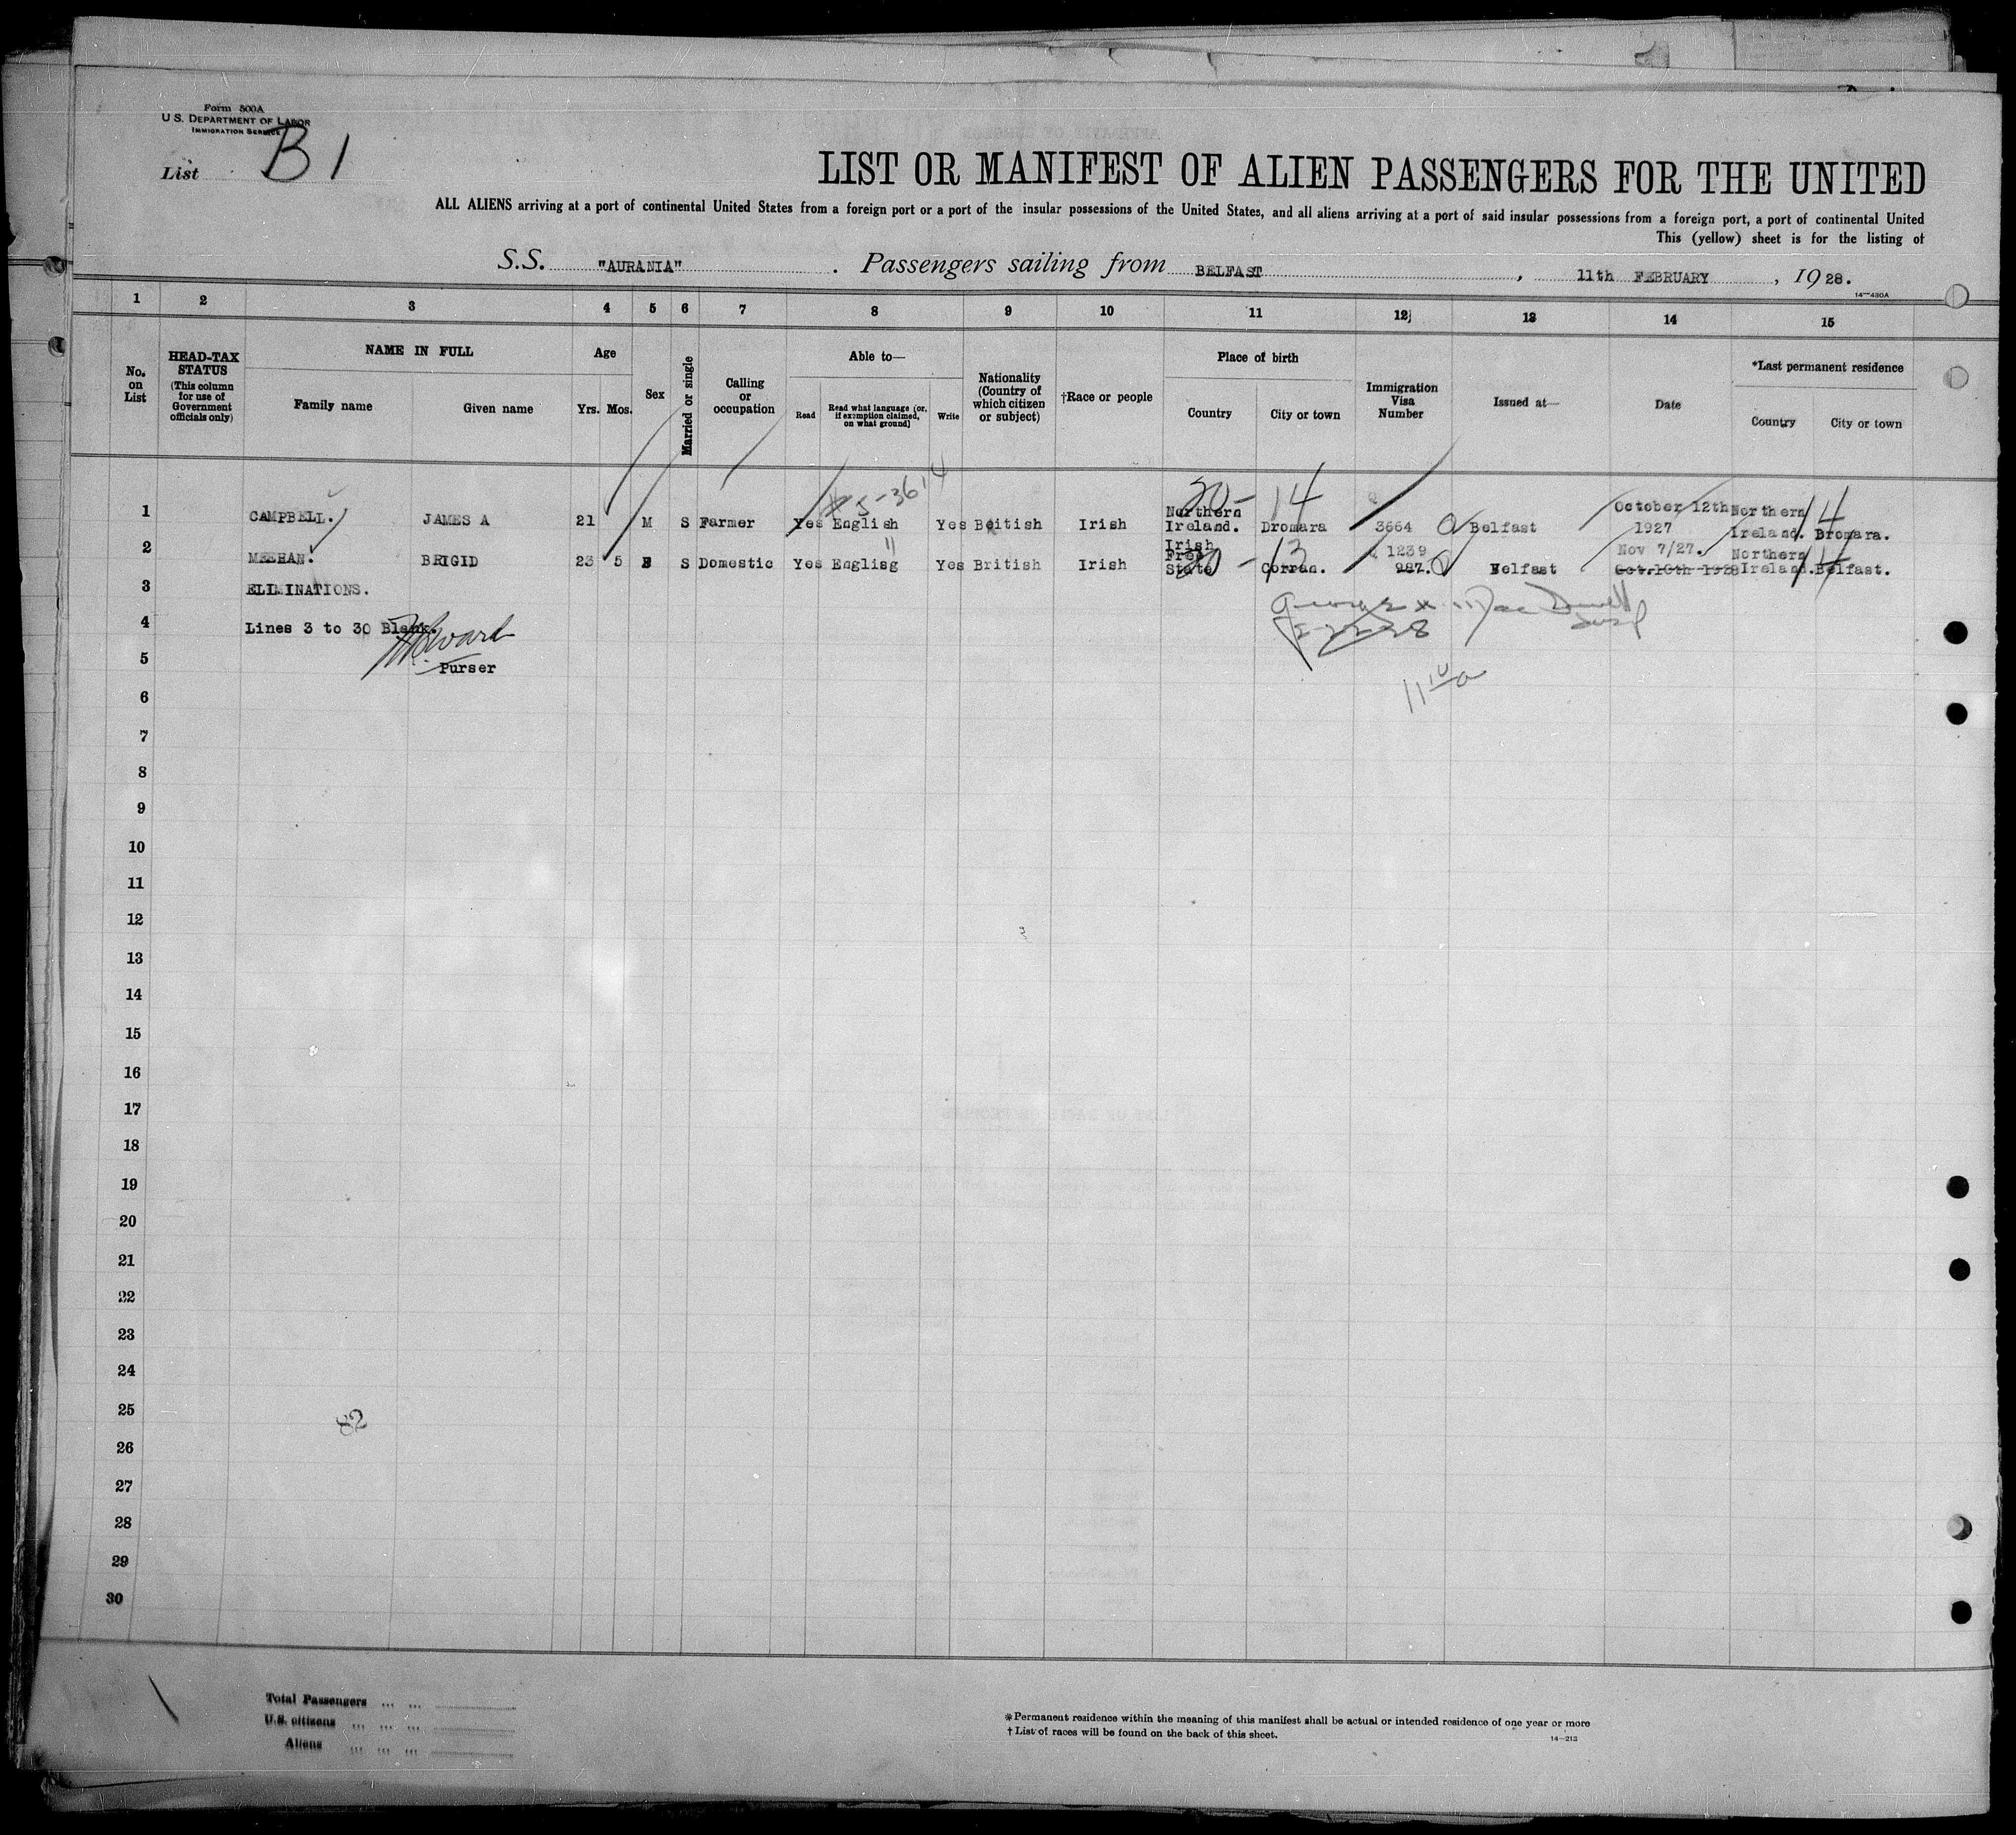 Form 500A
U.S. DEPARTMENT OF LABOR
IMMIGRATION SERVICE
List B 1
LIST OR MANIFEST OF ALIEN PASSENGERS FOR THE UNITED
ALL ALIENS arriving at a port of continental United States from a foreign port or a port of the insular possessions of the United States, and all aliens arriving at a port of said insular possessions from a foreign port, a port of continental United
This (yellow) sheet is for the listing of
S.S. "AURANIA" . Passengers sailing from BELFAST , 11th FEBRUARY , 1928.
14—430A
1 2 3 4 5 6 7 8 9 10 11 12 13 14 15
No. on List
HEAD-TAX STATUS
(This column for use of Government officials only)
NAME IN FULL
Family name Given name
Age
Yrs. Mos.
Sex
Married or single
Calling or occupation
Able to—
Read Read what language [or, if exemption claimed, on what ground] Write
Nationality (Country of which citizen or subject)
†Race or people
Place of birth
Country City or town
Immigration Visa Number
Issued at—
Date
*Last permanent residence
Country City or town
5-3614
20- 14 14
1 CAMPBELL. JAMES A 21 M S Farmer Yes English Yes British Irish Northern Ireland. Dromara 3664 Belfast October 12th 1927 Northern Ireland. Dromara.
20 - 13 14
2 MEEHAN. BRIGID 23 5 F S Domestic Yes Englisg Yes British Irish Irish Free State Corran. 1239 987. Belfast Nov 7/27. Oct.10th 1928 Northern Ireland. Belfast.
3 ELIMINATIONS.
4 Lines 3 to 30 Blank.
2-22-28
5 Purser
6
7
8
9
10
11
12
13
14
15
16
17
18
19
20
21
22
23
24
25
82
26
27
28
29
30
Total Passengers
U.S. citizens
Aliens
*Permanent residence within the meaning of this manifest shall be actual or intended residence of one year or more
†List of races will be found on the back of this sheet.
14—213